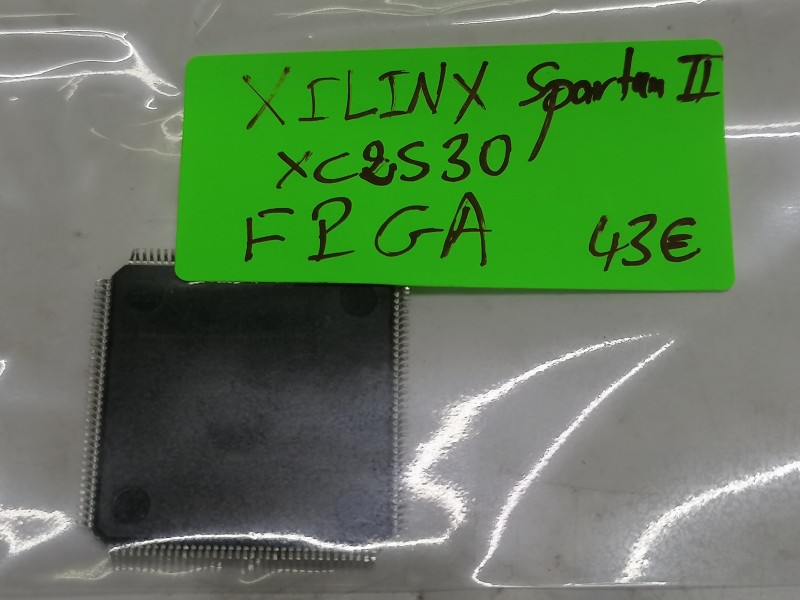 XILINX Spartan II
XC2S30
FPGA 43€